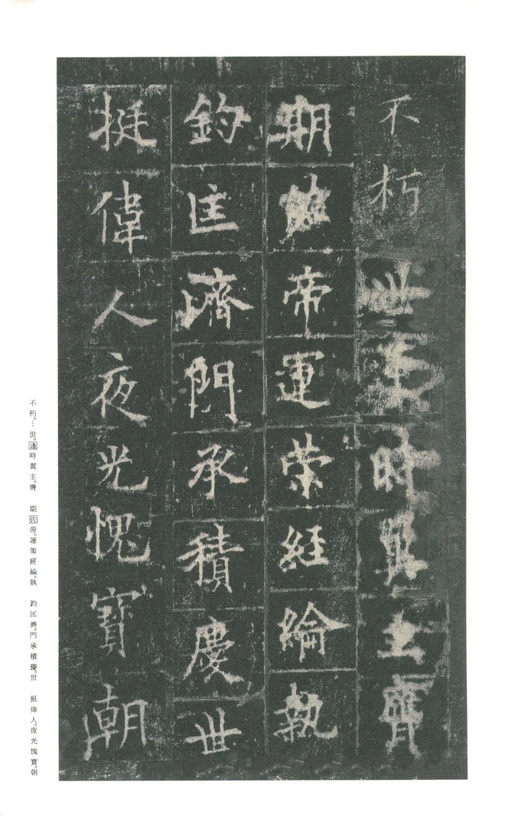 不朽世時主膺
期帝運策經綸執
鈞匡濟門承積慶世
挺偉人夜光愧寶朝
不朽。…世。時主。膺　期帝。運策經綸。執　鈞匡濟。門承積慶。世　挺偉人。夜光愧寶。朝